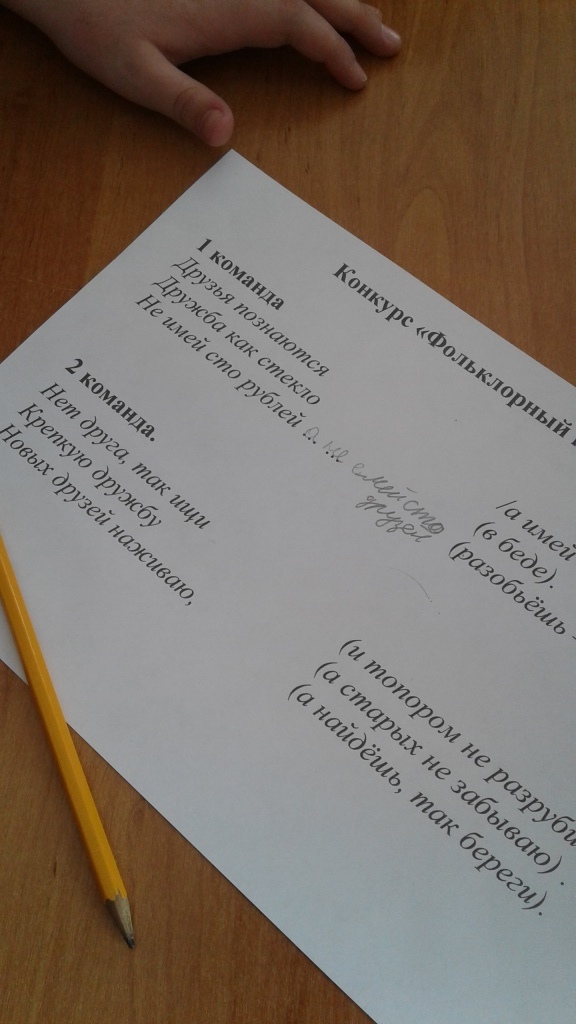 Конкурс «Фольклорный
1 команда
Друзья познаются
Дружба как стекло
Не имей сто рублей .. ... а не емей сто
друзей
/а имей
(в беде).
(разобьёшь
2 команда.
Нет друга, так ищи
Крепкую дружбу
Новых друзей наживаю,
(и топором не разруби
(а старых не забываю) .
(а найдёшь, так береги).